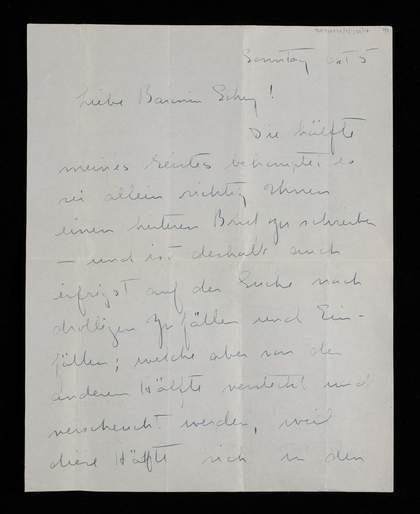 Sonntag Okt 5
Liebe Baronin
Die Hälfte
meines behauptet es
sei allein richtig Ihnen
einen heiteren Brief zu schreiben
– und ist deshalb auch
eifrigst auf der Suche nach
drolligen Zufällen und Ein-
fällen; welche aber von der
anderen Hälfte versteckt und
verscheucht werden, weil
diese Hälfte sich in den